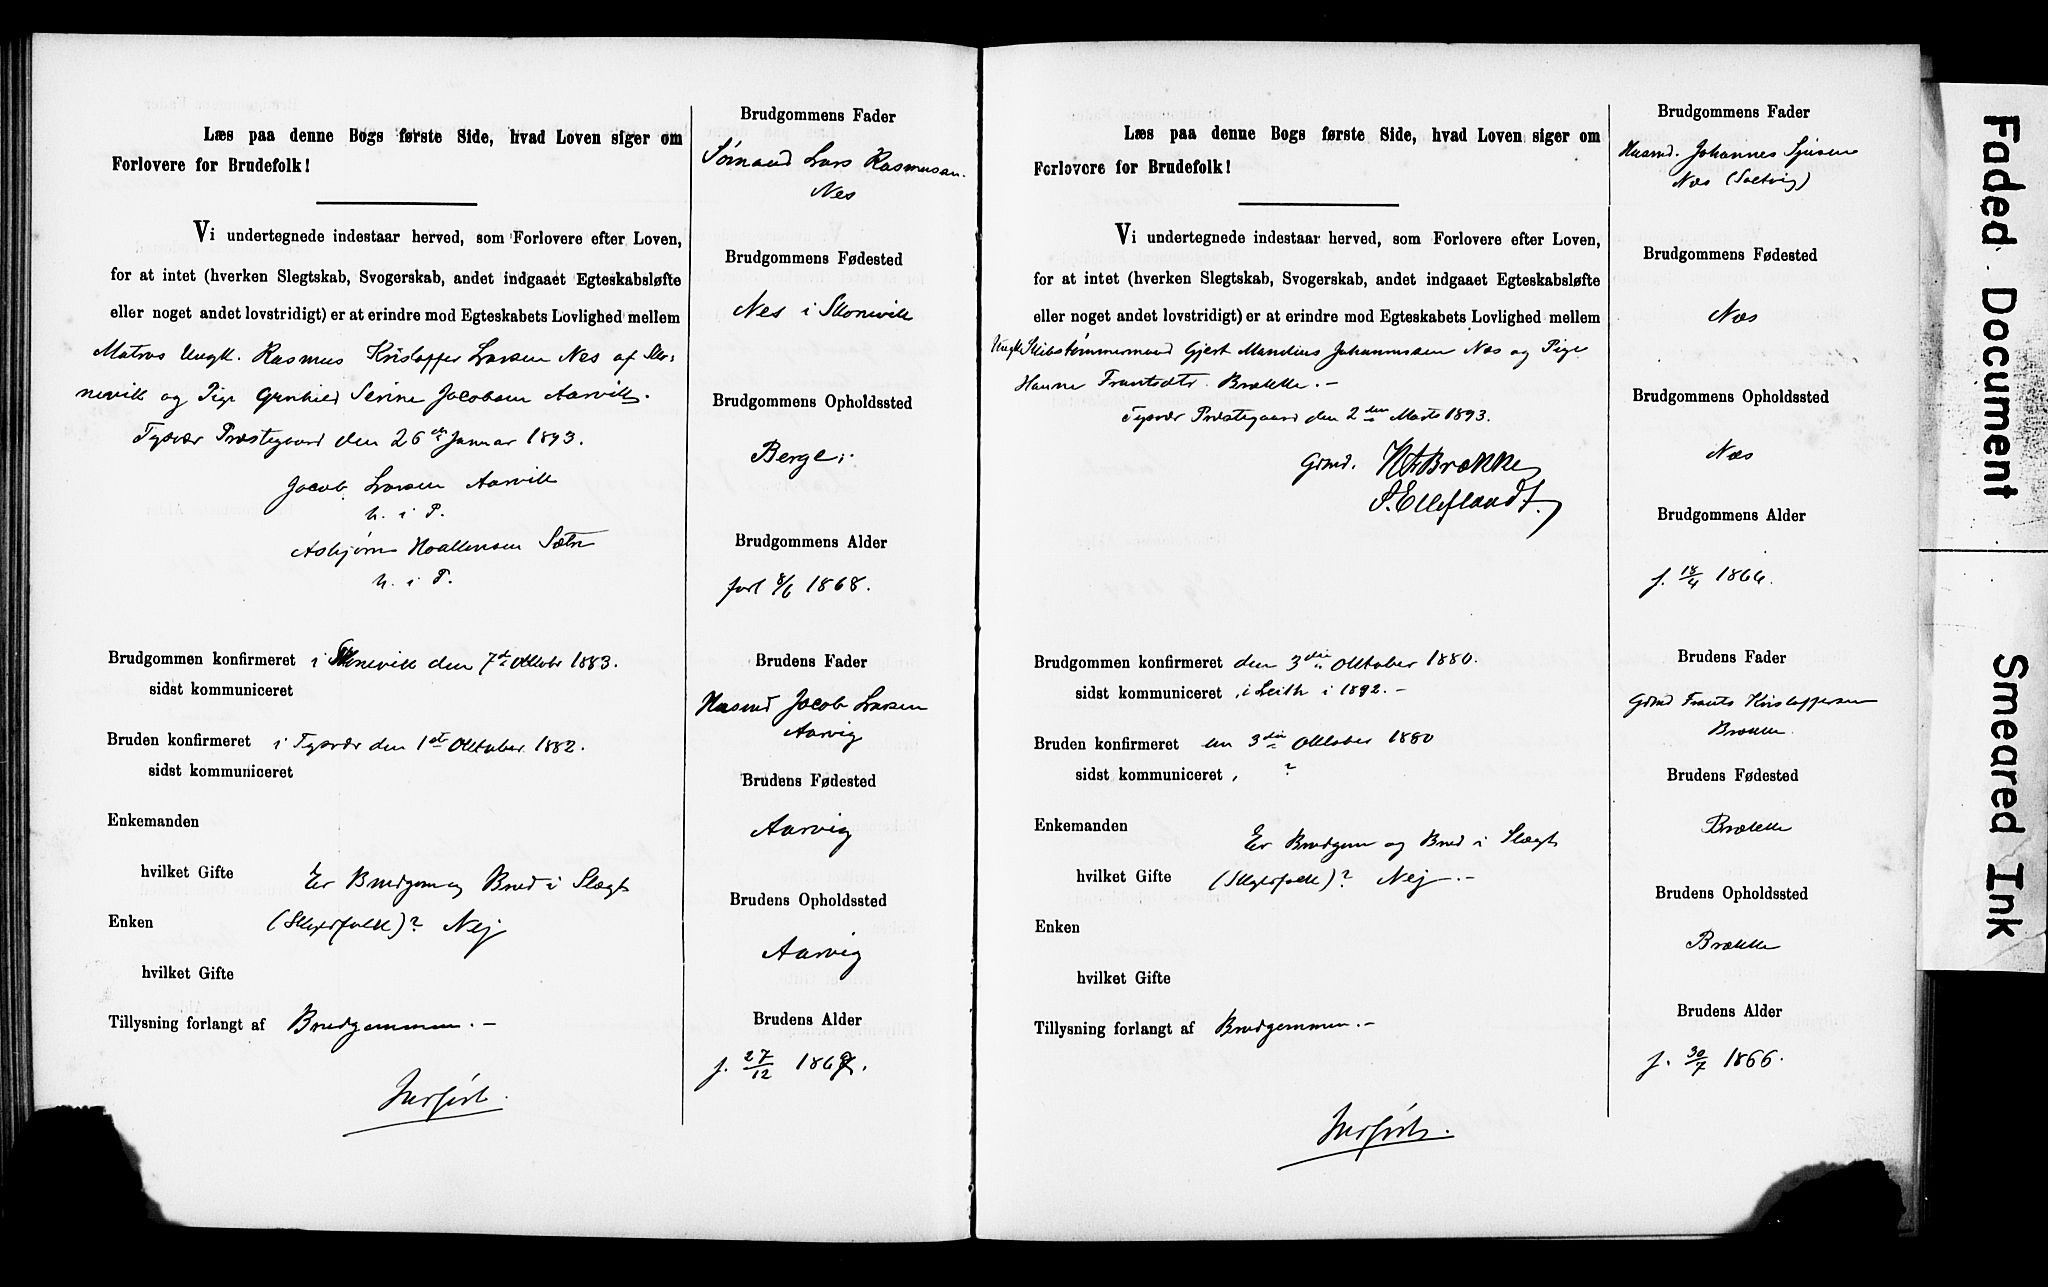 Læs paa denne Bogs første Side, hvad Loven siger om
Forlovere for Brudefolk!
Vi undertegnede indestaar herved, som Forlovere efter Loven,
for at intet (hverken Slegtskab, Svogerskab, andet indgaaet Egteskabsløfte
eller noget andet lovstridigt) er at erindre mod Egteskabets Lovlighed mellem
Matros Ungk. Rasmus Kristoffer Larsen Nes af Sko-
nevik og Pige Gunhild Serine Jacobsen Aarvik.
Tysvær Præstegaard den 26de Januar 1893.
Jacob Larsen Aarvik
m. i P.
Asbjørn Sætre
m. i P.
Brudgommen konfirmeret i Skonevik den 7de Oktobr 1883.
sidst kommuniceret
Bruden konfirmeret i Tysvær den 1ste Oktober 1882.
sidst kommuniceret
Enkemanden
hvilket Gifte
Er Brudgom og Brud i Slægt
Enken
(Skyldfolk)? Nej
hvilket Gifte
Tillysning forlangt af Brudgommen.-
Indført.
Brudgommens Fader
Sømand Lars Rasmussen
Nes
Brudgommens Fødested
Nes i Skonevik
Brudgommens Opholdssted
Bergen
Brudgommens Alder
født 8/6 1868.
Brudens Fader
Husmd Jacob Larsen
Aarvig
Brudens Fødested
Aarvig
Brudens Opholdssted
Aarvig
Brudens Alder
f. 27/12 1867.
Læs paa denne Bogs første Side, hvad Loven siger om
Forlovere for Brudefolk!
Vi undertegnede indestaar herved, som Forlovere efter Loven,
for at intet (hverken Slegtskab, Svogerskab, andet indgaaet Egteskabsløfte
eller noget andet lovstridigt) er at erindre mod Egteskabets Lovlighed mellem
Ungk. Skibstømmermand Gjert Mandius Johannessen Næs og Pige
Hanne Frantsdtr. Brække.-
Tysvær Præstegaard den 2den Marts 1893.
Grmd. K A Brække
S. Elleflaadt.
Brudgommen konfirmeret den 3die Oktober 1880.
sidst kommuniceret, i Leith i 1892.-
Bruden konfirmeret den 3die Oktober 1880
sidst kommuniceret, ?
Enkemanden
Er Brudgom og Brud i Slægt
hvilket Gifte
(Skyldfolk)? Nej.-
Enken
hvilket Gifte
Tillysning forlangt af Brudgommen.-
Indført.
Brudgommens Fader
Husmd. Johannes
Næs (Soltvig)
Brudgommens Fødested
Næs
Brudgommens Opholdssted
Næs
Brudgommens Alder
f. 18/4 1864.
Brudens Fader
Grmd Frants Kristoffersen
Brække.
Brudens Fødested
Brække
Brudens Opholdssted
Brække
Brudens Alder
f. 30/7 1866.
Faded Document
Smeared Ink